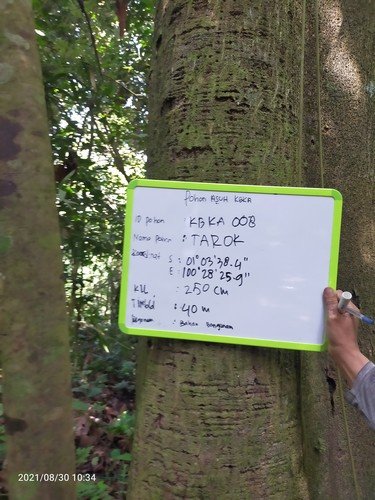 Pohon ASUH KBKA
ID pohon : KBKA 008
Nama pohon : TAROK
Koordinat S : 01°03'38.4"
E : 100°28'25.9"
KLL : 250 cm
: 40 m
: Bahan Bangunan
2021/08/30 10:34